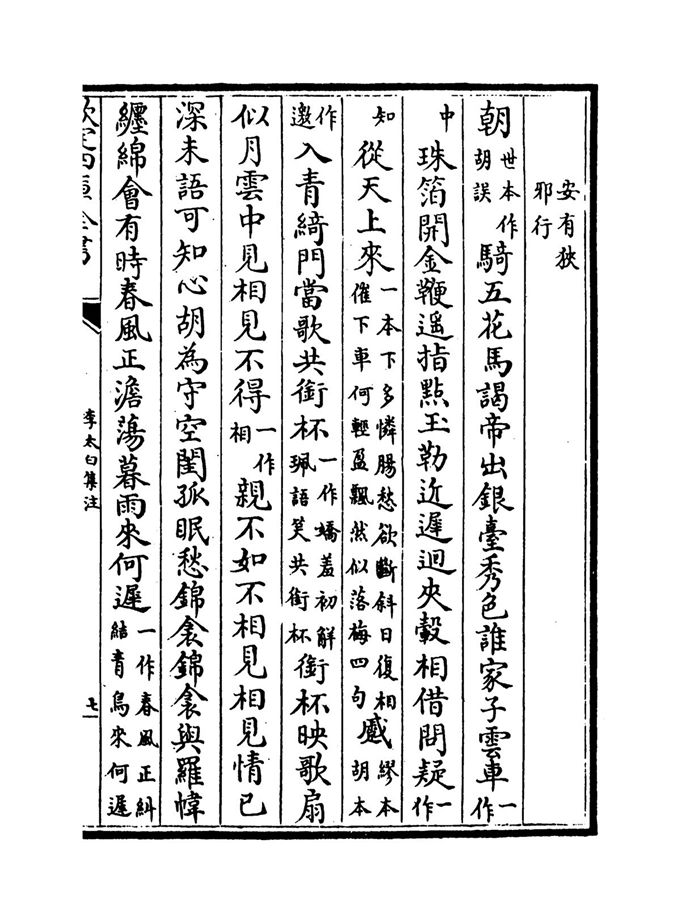 安有狹
邪行
朝世本作胡誤騎五花馬謁帝出銀臺秀色誰家子雲車一作
中珠箔開金鞭遥指點玉勒近遲迴夾轂相借問疑一作
知從天上來一本下多憐腸愁欲斷斜日復相催下車何輕盈飄然似落梅四句感繆本胡本
作邊入青綺門當歌共銜杯一作嬌羞初解珮語笑共銜杯銜杯映歌扇
似月雲中見相見不得一作相親不如不相見相見情已
深未語可知心胡為守空閨孤眠愁錦衾錦衾與羅幃
纏綿會有時春風正澹蕩暮雨來何遲一作春風正糾結青鳥來何遲
欽定四庫全書
李太白集注
七